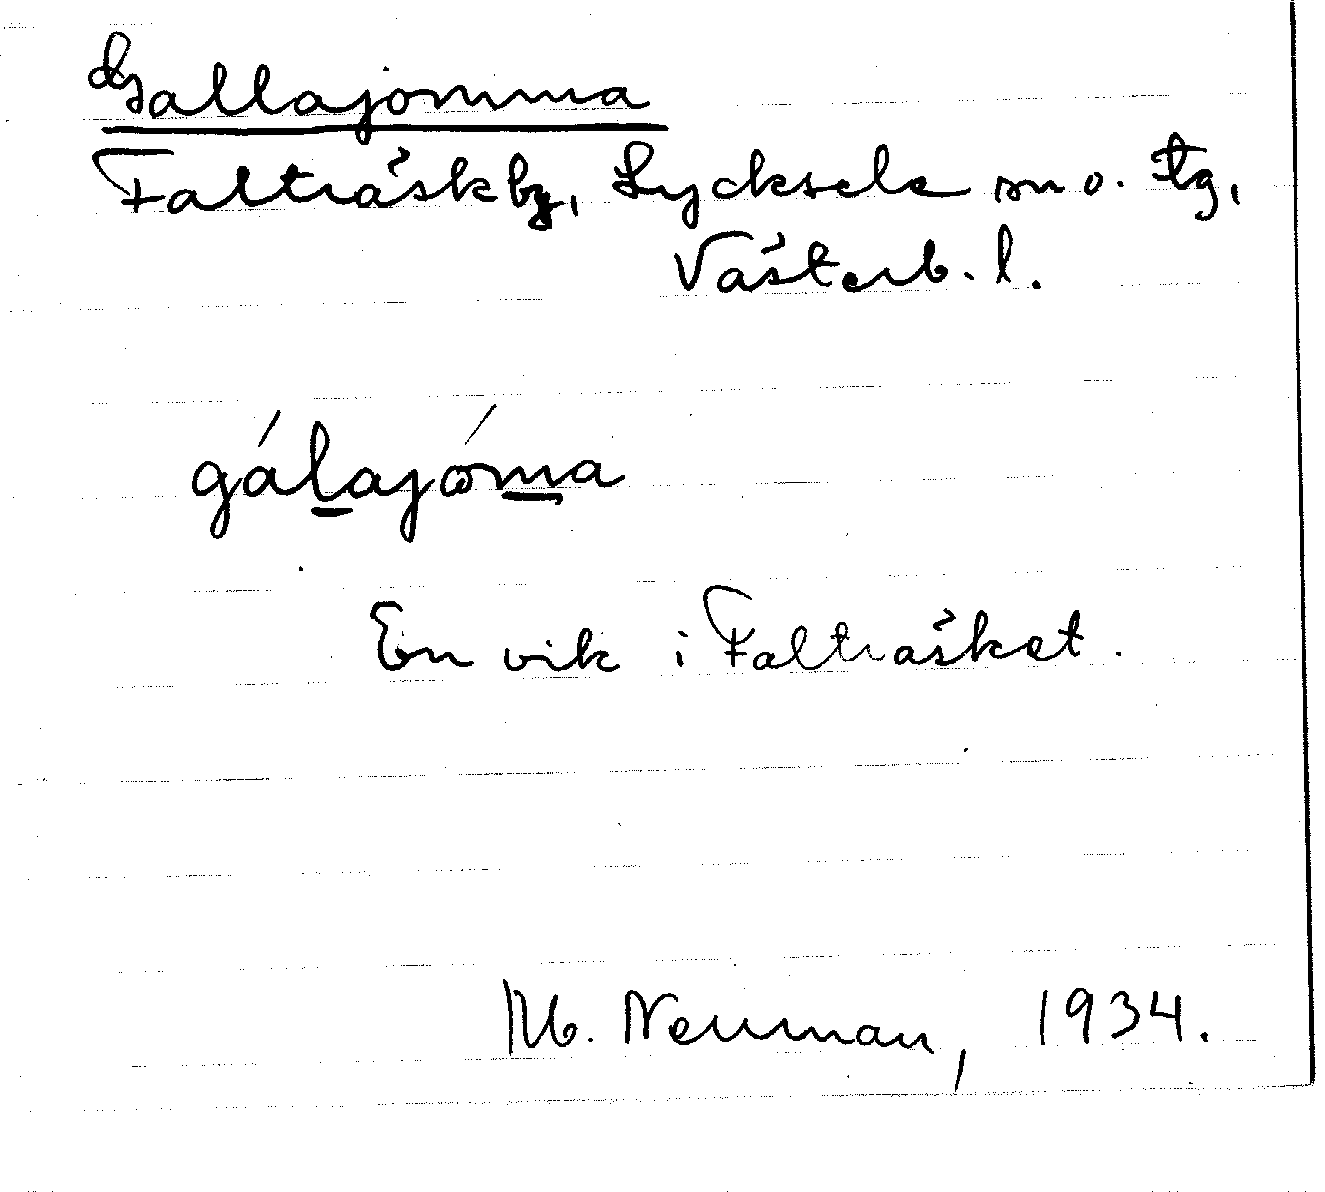 Gallajomma
Falträsk by, Lycksele sn o. tg,
Västerb. l.
gálajóma
En vik i Falträsket.
M. Neuman, 1934.